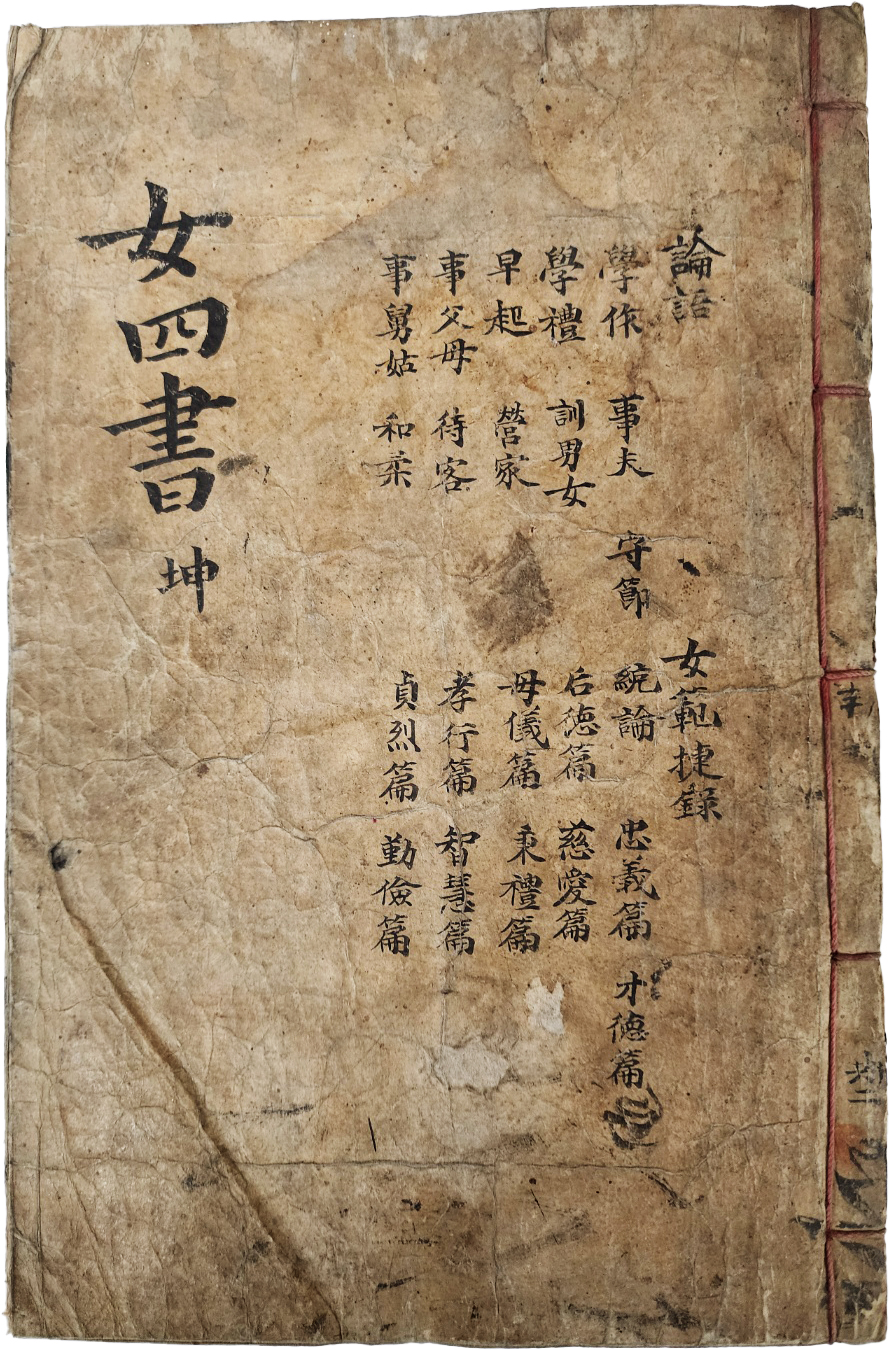 論語
學作 事夫 守節
學禮 訓男女
早起 營家
事父母 待客
事舅姑 和柔
女範捷錄
統論 忠義篇 才德篇
后德篇 慈愛篇
母儀篇 秉禮篇
孝行篇 智慧篇
貞烈篇 勤儉篇
女四書 坤